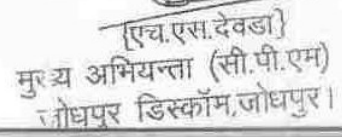 {एच.एस.देवडा}
मुख्य अभियन्ता (सी.पी.एम)
जोधपुर डिस्कॉम,जोधपुर।